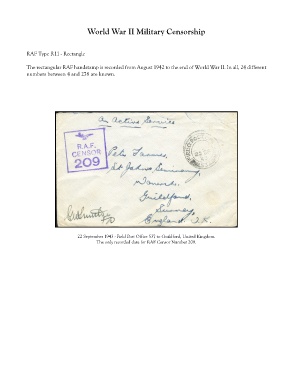 World War II Military Censorship
RAF Type R11 - Rectangle
The rectangular RAF handstamp is recorded from August 1942 to the end of World War II. In all, 28 different
numbers between 4 and 258 are known.
On Active Service
R.A.F.
CENSOR
209
Peter
St Johns Seminary,
Wonersh,
Guildford,
Surrey,
England. U.K.
22 September 1943 - Field Post Office 527 to Guildford, United Kingdom
The only recorded date for RAF Censor Number 209.